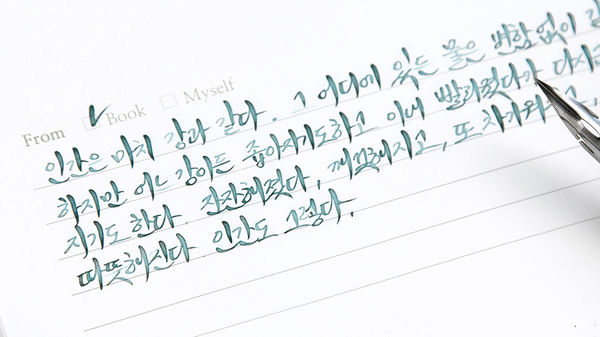 From Book Myself
인간은 마치 강과 같다. 그 어디에 있든 물은 변함없이
하지만 어느 강이든 좁아지기도하고 이내 빨라졌다가 다시금
지기도 한다. 잔잔해졌다, 깨끗해지고, 또 차가워
따뜻해진다 인간도 그렇다.